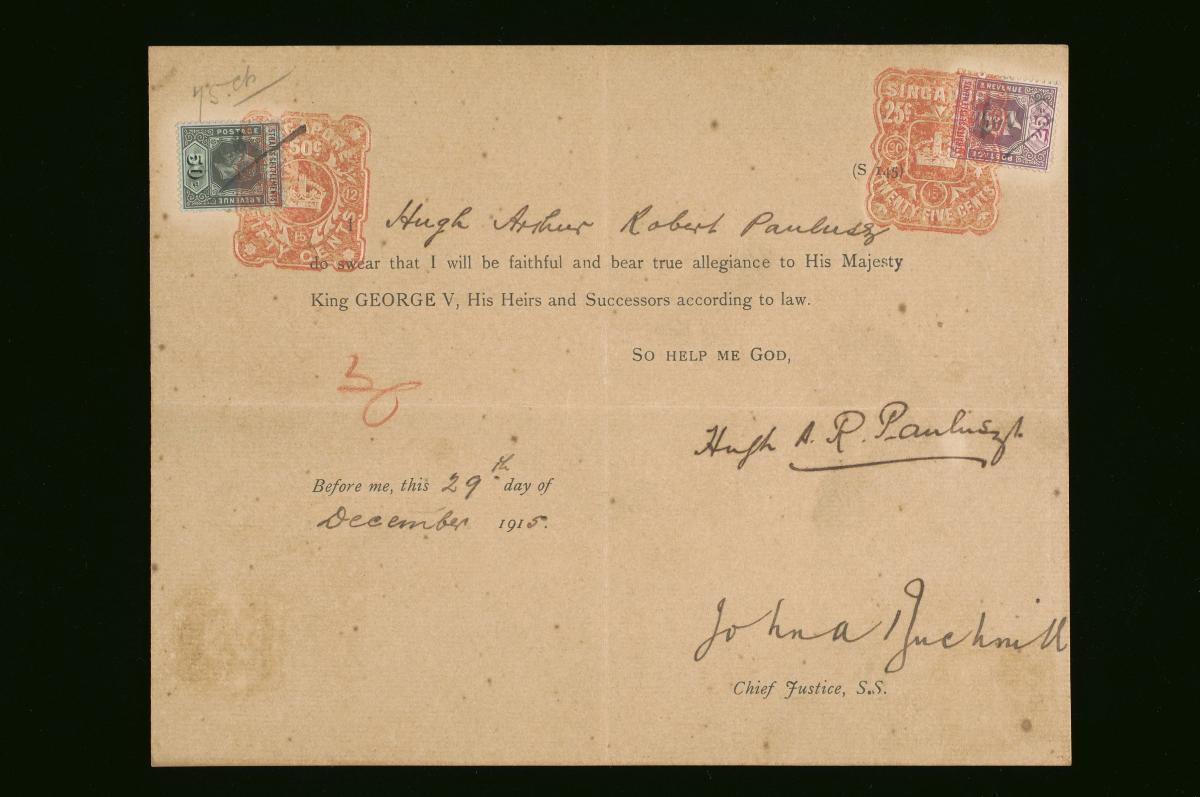 75. cts
POSTAGE
STRAITS SETTLEMENTS
50c
& REVENUE
50c
12
15
FIFTY CENTS
SINGAPORE
25c
20
15
TWENTY FIVE CENTS
& REVENUE
STRAITS SETTLEMENTS
POSTAGE
25c
(S 145)
I Hugh Arthur Robert Paulusz
do swear that I will be faithful and bear true allegiance to His Majesty
King GEORGE V, His Heirs and Successors according to law.
SO HELP ME GOD,
Hugh A. R. Paulusz.
Before me, this 29th day of
December 1915.
John A Bucknill
Chief Justice, S.S.